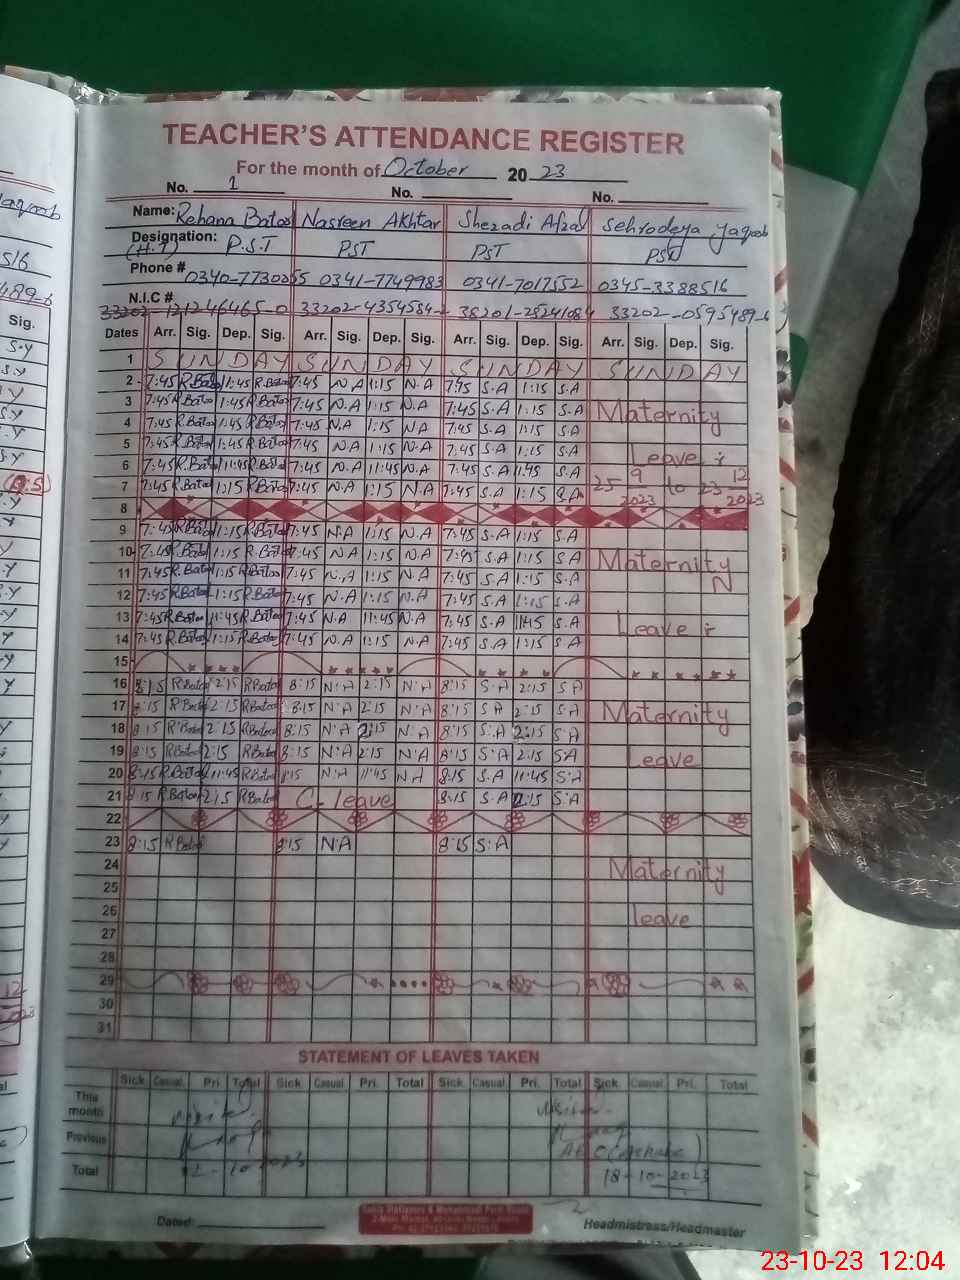 TEACHER'S ATTENDANCE REGISTER
For the month of October 2023
No. 1 No. No.
Name: Rehana Batool Nasreen Akhtar Shezadi Afzal Sehrodeya Yaqoob
Designation: (H.T) P.S.T PST PST PST
Phone # 0340-7730255 0341-7749983 0341-7017552 0345-3388516
N.I.C #
Dates Arr. Sig. Dep. Sig. Arr. Sig. Dep. Sig. Arr. Sig. Dep. Sig. Arr. Sig. Dep. Sig.
1 SUNDAY SUNDAY SUNDAY SUNDAY
2 7:45 R.Batool 1:45 R.Batool 7:45 N.A 1:15 N.A 7:45 S.A 1:15 S.A
3 7:45 R.Batool 1:45 R.Batool 7:45 N.A 1:15 N.A 7:45 S.A 1:15 S.A Maternity
4 7:45 R.Batool 1:45 R.Batool 7:45 N.A 1:15 N.A 7:45 S.A 1:15 S.A
5 7:45 R.Batool 1:45 R.Batool 7:45 N.A 1:15 N.A 7:45 S.A 1:15 S.A Leave
6 7:45 R.Batool 11:45 R.Batool 7:45 N.A 11:45 N.A 7:45 S.A 11:45 S.A
7 7:45 R.Batool 1:15 R.Batool 7:45 N.A 1:15 N.A 7:45 S.A 1:15 S.A 25 9 2023 to 23 12 2023
8
9 7:45 R.Batool 1:15 R.Batool 7:45 N.A 1:15 N.A 7:45 S.A 1:15 S.A
10 7:45 R.Batool 1:15 R.Batool 7:45 N.A 1:15 N.A 7:45 S.A 1:15 S.A Maternity
11 7:45 R.Batool 1:15 R.Batool 7:45 N.A 1:15 N.A 7:45 S.A 1:15 S.A N
12 7:45 R.Batool 1:15 R.Batool 7:45 N.A 1:15 N.A 7:45 S.A 1:15 S.A
13 7:45 R.Batool 11:45 R.Batool 7:45 N.A 11:45 N.A 7:45 S.A 11:45 S.A Leave
14 7:45 R.Batool 1:15 R.Batool 7:45 N.A 1:15 N.A 7:45 S.A 1:15 S.A
15
16 8:15 R.Batool 2:15 R.Batool 8:15 N.A 2:15 N.A 8:15 S.A 2:15 S.A
17 8:15 R.Batool 2:15 R.Batool 8:15 N.A 2:15 N.A 8:15 S.A 2:15 S.A Maternity
18 8:15 R.Batool 2:15 R.Batool 8:15 N.A 2:15 N.A 8:15 S.A 2:15 S.A
19 8:15 R.Batool 2:15 R.Batool 8:15 N.A 2:15 N.A 8:15 S.A 2:15 S.A Leave
20 8:15 R.Batool 11:45 R.Batool 8:15 N.A 11:45 N.A 8:15 S.A 11:45 S.A
21 8:15 R.Batool 2:15 R.Batool C-leave 8:15 S.A 2:15 S.A
22
23 8:15 R.Batool 8:15 N.A 8:15 S.A
24 Maternity
25
26 leave
27
28
29
30
31
STATEMENT OF LEAVES TAKEN
Sick Casual Pri. Total Sick Casual Pri. Total Sick Casual Pri. Total Sick Casual Pri. Total
This month
Previous
Total 18-10-2023
Dated:
Headmistress/Headmaster
23-10-23 12:04